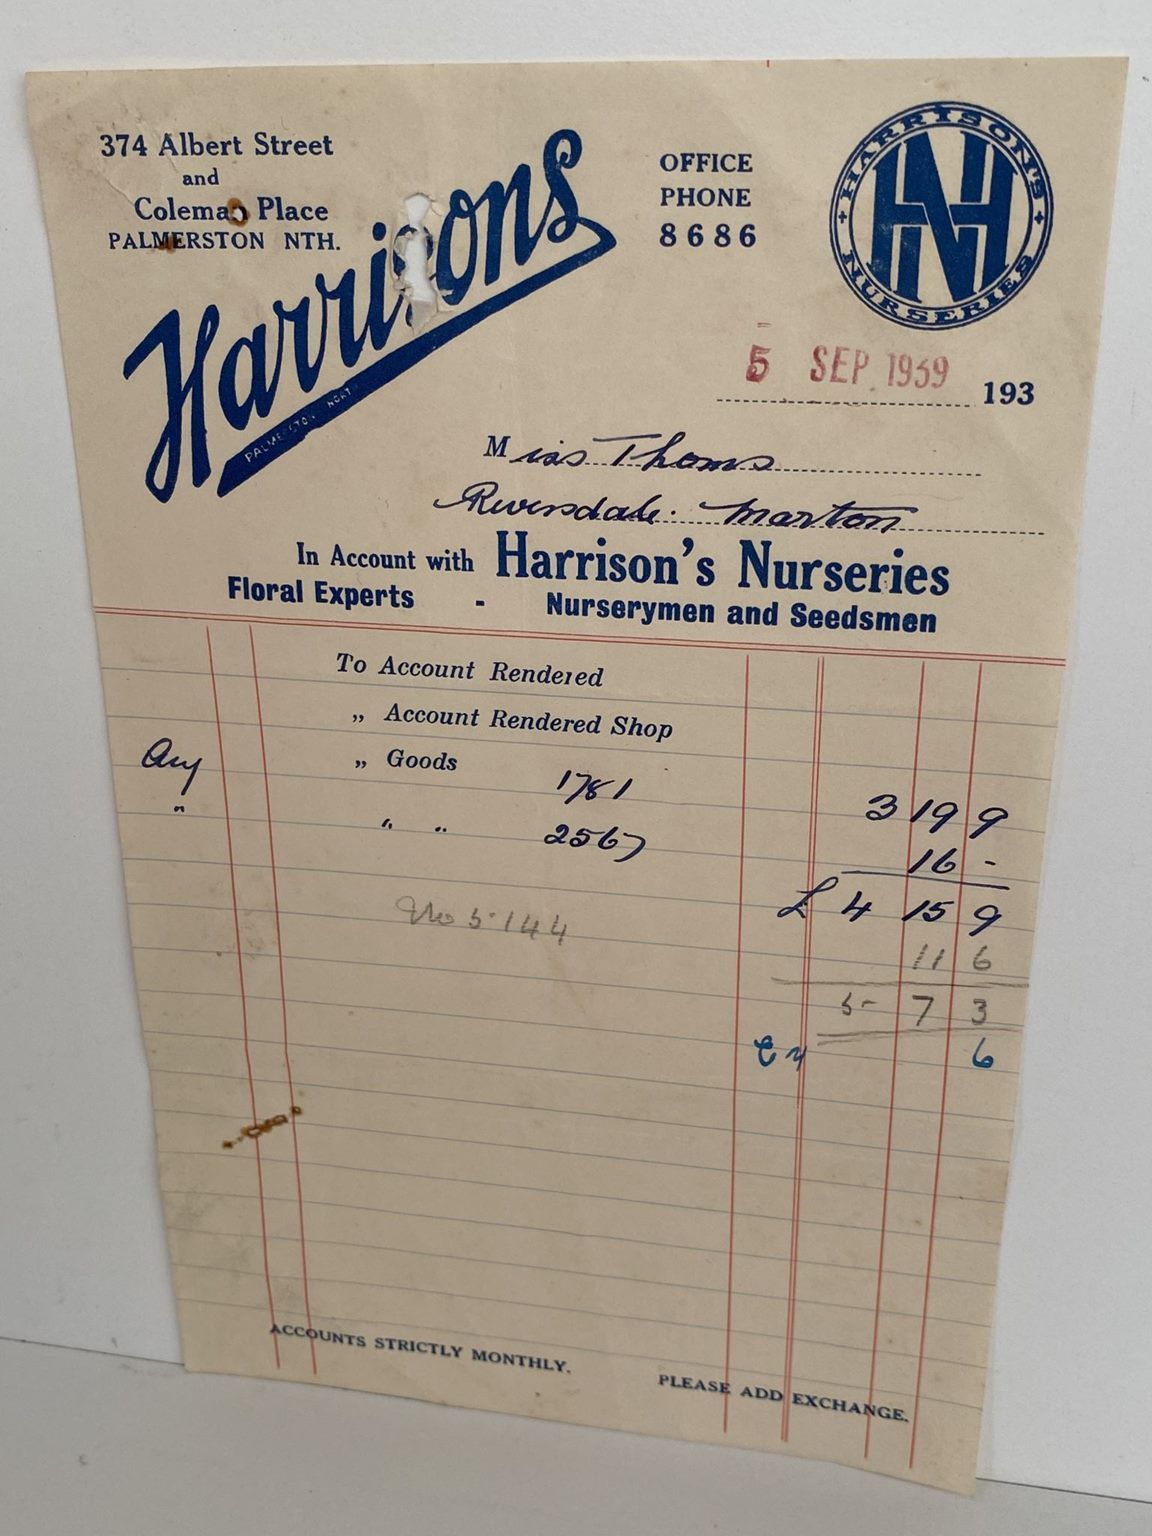 374 Albert Street
and
Coleman Place
PALMERSTON NTH.
Harrisons
PALMERSTON NORTH
OFFICE
PHONE
8686
HARRISON'S
NURSERIES
HN
5 SEP 1939 193
Miss Thoms
Riversdale. Marton
In Account with Harrison's Nurseries
Floral Experts - Nurserymen and Seedsmen
To Account Rendered
„ Account Rendered Shop
Aug „ Goods 1781 3 19 9
" " " 2567 16 -
£ 4 15 9
No 5144
11 6
5- 7 3
6
ACCOUNTS STRICTLY MONTHLY.
PLEASE ADD EXCHANGE.